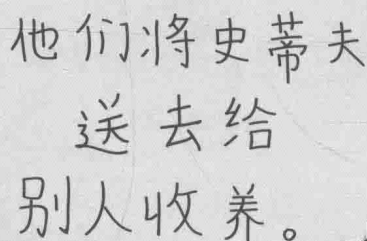 他们将史蒂夫
送去给
别人收养。